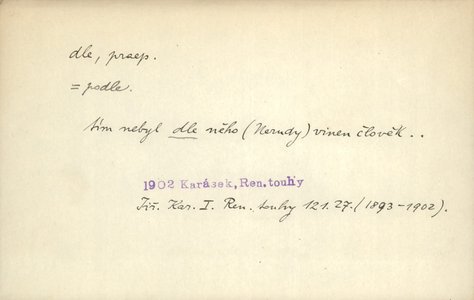 dle, praep.
= podle.
tím nebyl dle něho (Nerudy) vinen člověk . .
1902 Karásek, Ren.touhy
Jiř. Kar. I. Ren. touhy 121.27. (1893-1902).